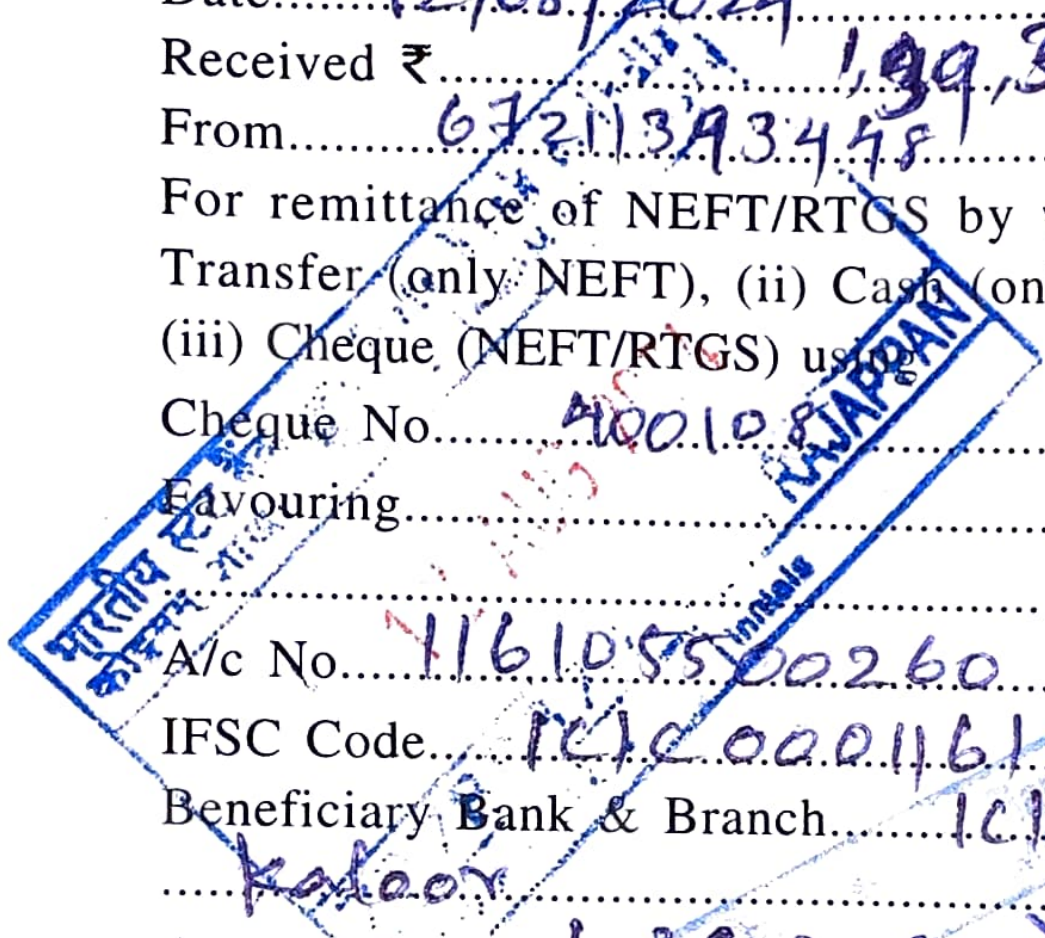 Date........12/08/2024
Received ₹........1,99,3
From........67211393448
For remittance of NEFT/RTGS by
Transfer (only NEFT), (ii) Cash (on
(iii) Cheque (NEFT/RTGS) using
Cheque No........400108
Favouring........
A/c No....116105500260
IFSC Code......ICIC0001161
Beneficiary Bank & Branch........ICI
Kaloor
भारतीय स्टेट बैंक
RAJAPPAN
Initials